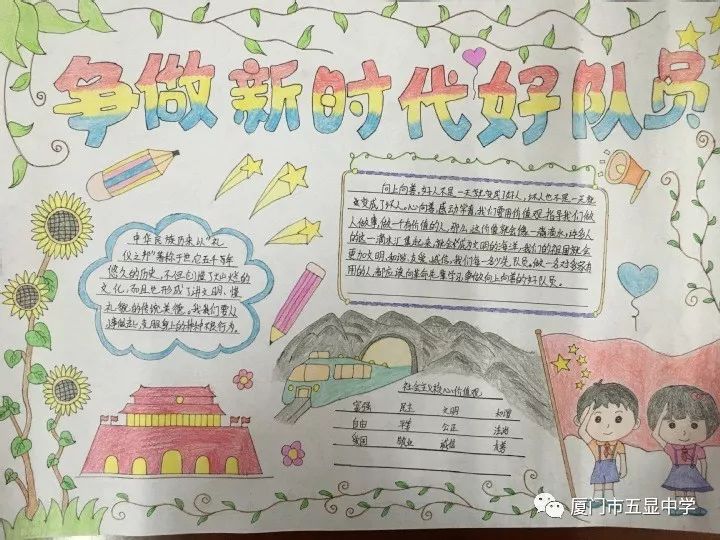 争做新时代好队员
中华民族历来以“礼
仪之邦”著称于世，它五千年
悠久的历史，不但创造了灿烂的
文化，而且也形成了讲文明、懂
礼貌的传统美德。我们要从
身上的种种不良行为。
向上向善，好人不是一天就变成了好人，坏人也不是一天就
变成了坏人。心向善，感动常有。我们要用价值观，指导我们做
人做事，做一个有价值的人。那么，这价值就会像一滴滴水，许多人
的这一滴水汇集起来，就会成为文明的海洋，我们的祖国就会
更加文明、和谐、友爱、诚信。我们每一名少先队员，做一名对国家有
用的人，都应该向革命先辈学习，争做向上向善的好队员。
社会主义核心价值观
富强 民主 文明 和谐
自由 平等 公正 法治
爱国 敬业 诚信 友善
厦门市五显中学